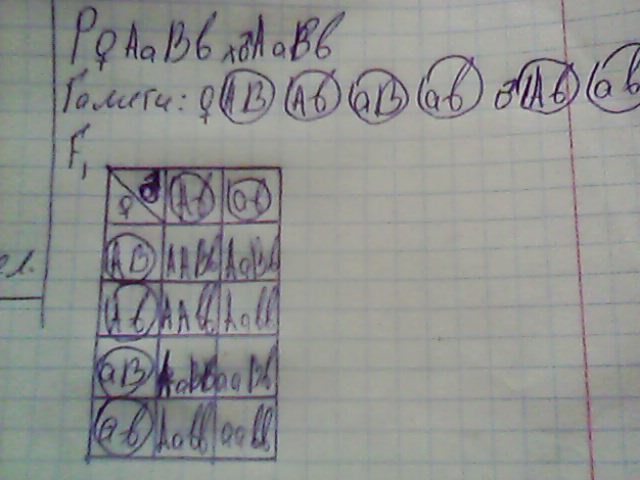 P ♀ AaBb x ♂ AaBb
Гаметы: ♀ AB Ab aB ab ♂ Ab ab
F1
♀ ♂ Ab ab
AB AABb AaBb
Ab AAbb Aabb
aB AaBb aaBb
ab Aabb aabb